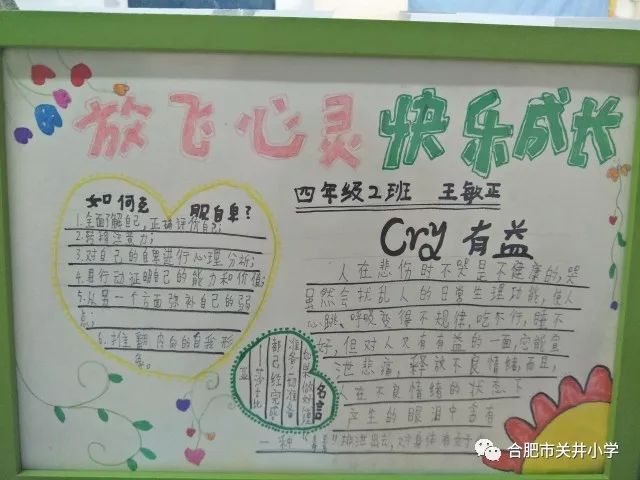 放飞心灵 快乐成长
四年级2班 王敏正
如何克服自卑？
1.全面了解自己，正确评价自己；
2.转移注意力；
3.对自己的自卑进行心理分析；
4.用行动证明自己的能力和价值；
5.从另一个方面弥补自己的弱
点；
6.推翻内向的自我形
象。
Cry 有益
人在悲伤时不哭是不健康的，哭
虽然会扰乱人的日常生理功能，使人
心跳、呼吸变得不规律，吃不行，睡不
好，但对人又有有益的一面，它能宣
泄悲痛，释放不良情绪，而且，
人在不良情绪的状态下
产生的眼泪中含有
一种
排泄出去，对身体有好
名言
如果你做好准
准备，一切准备
都已经完成
——莎士比
亚
合肥市关井小学